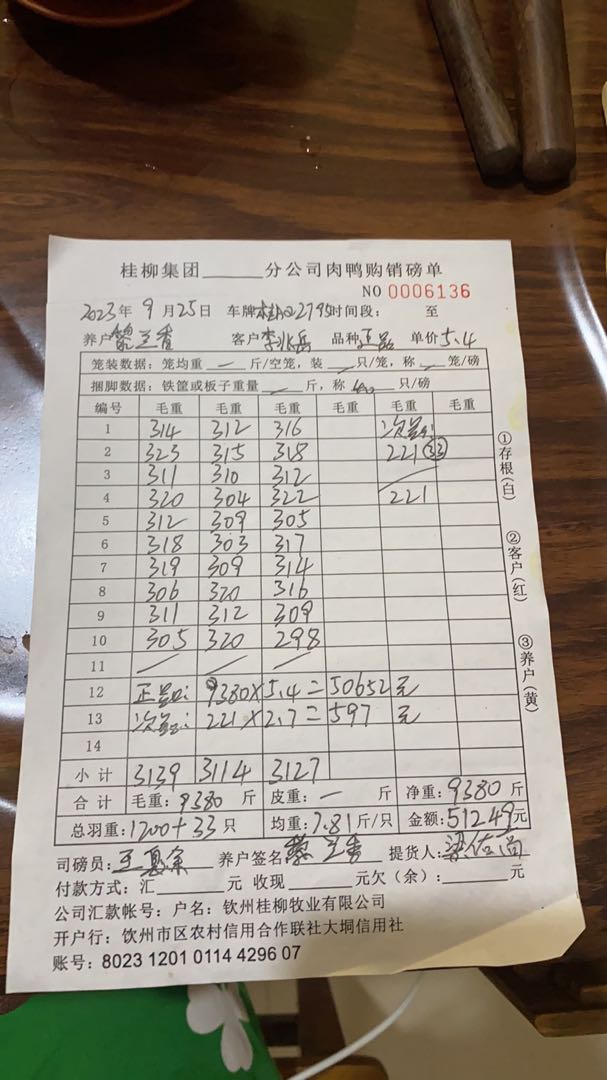 桂柳集团______分公司肉鸭购销磅单
NO 0006136
2023年 9月25日 车牌 2795 时间段: 至
养户 黎兰香 客户 李兆岳 品种 正品 单价 5.4
笼装数据: 笼均重 — 斤/空笼, 装 — 只/笼, 称 — 笼/磅
捆脚数据: 铁筐或板子重量 — 斤, 称 40 只/磅
编号 毛重 毛重 毛重 毛重 毛重 毛重
1 314 312 316 次品:
2 323 315 318 221 33
3 311 310 312
4 320 304 322 221
5 312 309 305
6 318 303 317
7 319 309 314
8 306 320 316
9 311 312 309
10 305 320 298
11 / / /
12 正品: 9380×5.4=50652元
13 次品: 221×2.7=597元
14
小计 3139 3114 3127
合计 毛重: 9380 斤 皮重: — 斤 净重: 9380 斤
总羽重: 1200+33 只 均重: 7.81 斤/只 金额: 51249元
司磅员: 养户签名: 黎兰香 提货人:
付款方式: 汇______元 收现______元欠(余):______元
公司汇款帐号: 户名: 钦州桂柳牧业有限公司
开户行: 钦州市区农村信用合作联社大垌信用社
账号: 8023 1201 0114 4296 07
①存根(白)
②客户(红)
③养户(黄)